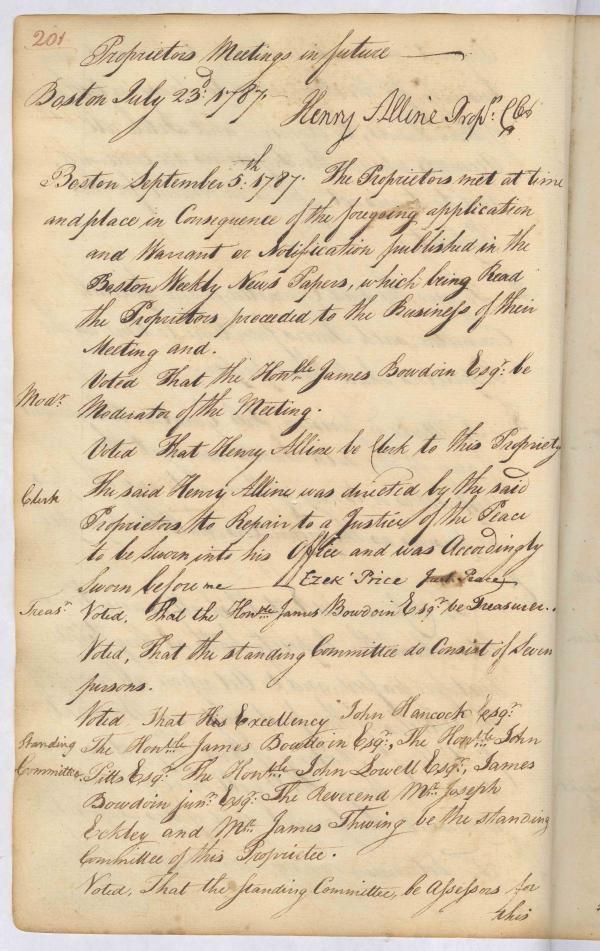 201
Proprietors Meetings in future
Boston July 23d. 1787.
Henry Alline Propr. Clk
Boston September 5th. 1787. The Proprietors met at time
and place in Consequence of the foregoing application
and Warrant or Notification published in the
Boston Weekly News Papers, which being Read
the Proprietors proceeded to the Business of their
Meeting and.
Voted That the Honble. James Bowdoin Esqr. be
Modr. Moderator of the Meeting.
Voted That Henry Alline be Clerk to this Propriety
Clerk The said Henry Alline was directed by the said
Proprietors to Repair to a Justice of the Peace
to be Sworn into his Office and was Accordingly
Sworn before me Ezekl Price Just. Peace
Treasr. Voted, That the Honble. James Bowdoin Esqr. be Treasurer.
Voted, That the standing Committee do Consist of Seven
persons.
Voted That His Excellency John Hancock Esqr.
Standing The Honble. James Bowdoin Esqr., The Honble. John
Committee. Pitts Esqr. The Honble. John Lowell Esqr., James
Bowdoin junr. Esqr. The Reverend Mr. Joseph
Eckley and Mr. James Thwing be the standing
Committee of this Proprietee.
Voted, That the standing Committee, be Assessors for
this